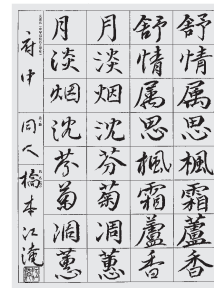 舒情属思楓霜蘆香
舒情属思楓霜蘆香
月淡烟沈芬菊凋蕙
月淡烟沈芬菊凋蕙
府中 同人 橋本江